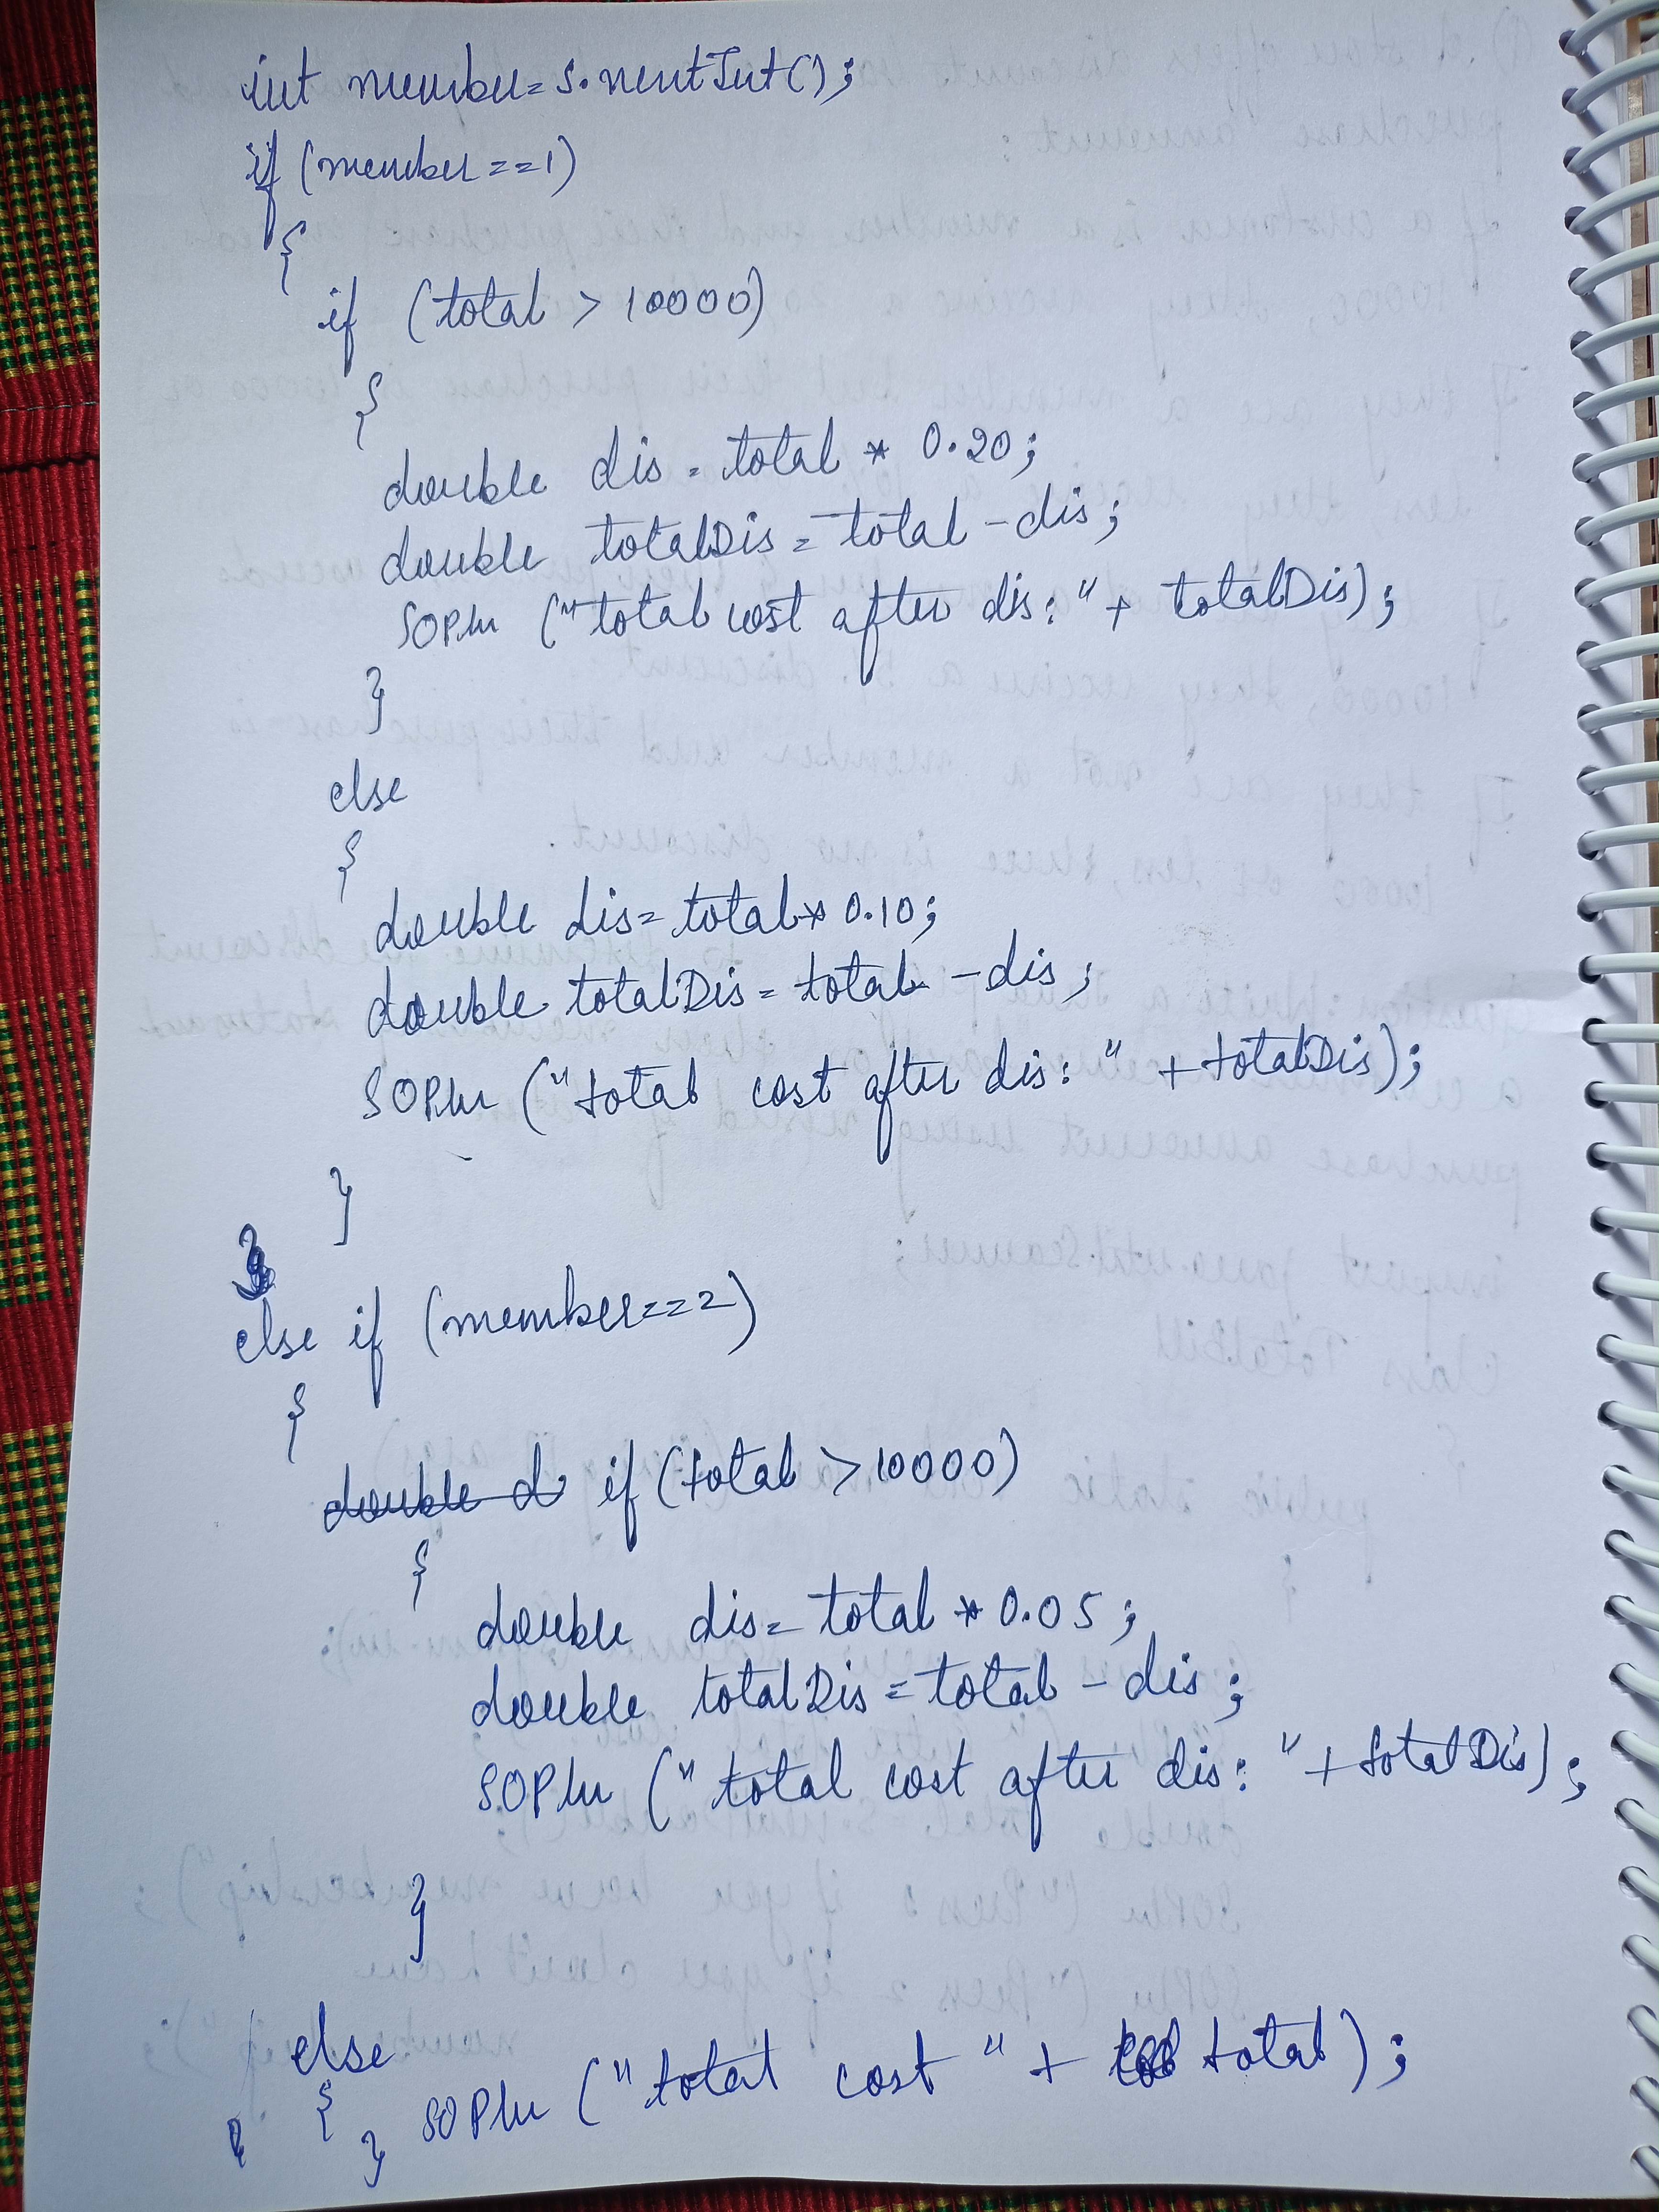 int member=s.nextInt();
if (member==1)
{
if (total > 10000)
{
double dis = total * 0.20;
double totalDis = total - dis;
SOPln ("total cost after dis:" + totalDis);
}
else
{
double dis = total * 0.10;
double totalDis = total - dis;
SOPln ("total cost after dis: " + totalDis);
}
}
else if (member==2)
{
double d if (total > 10000)
{
double dis = total * 0.05;
double totalDis = total - dis;
SOPln ("total cost after dis: " + totalDis);
}
else
{ } SOPln ("total cost " + total);